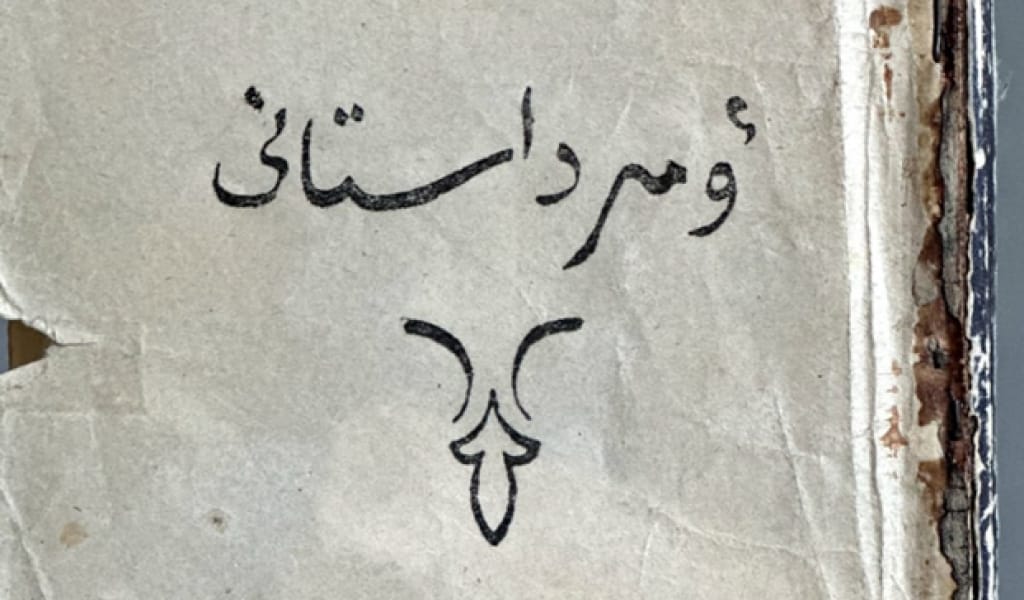 ؤمر داستانی